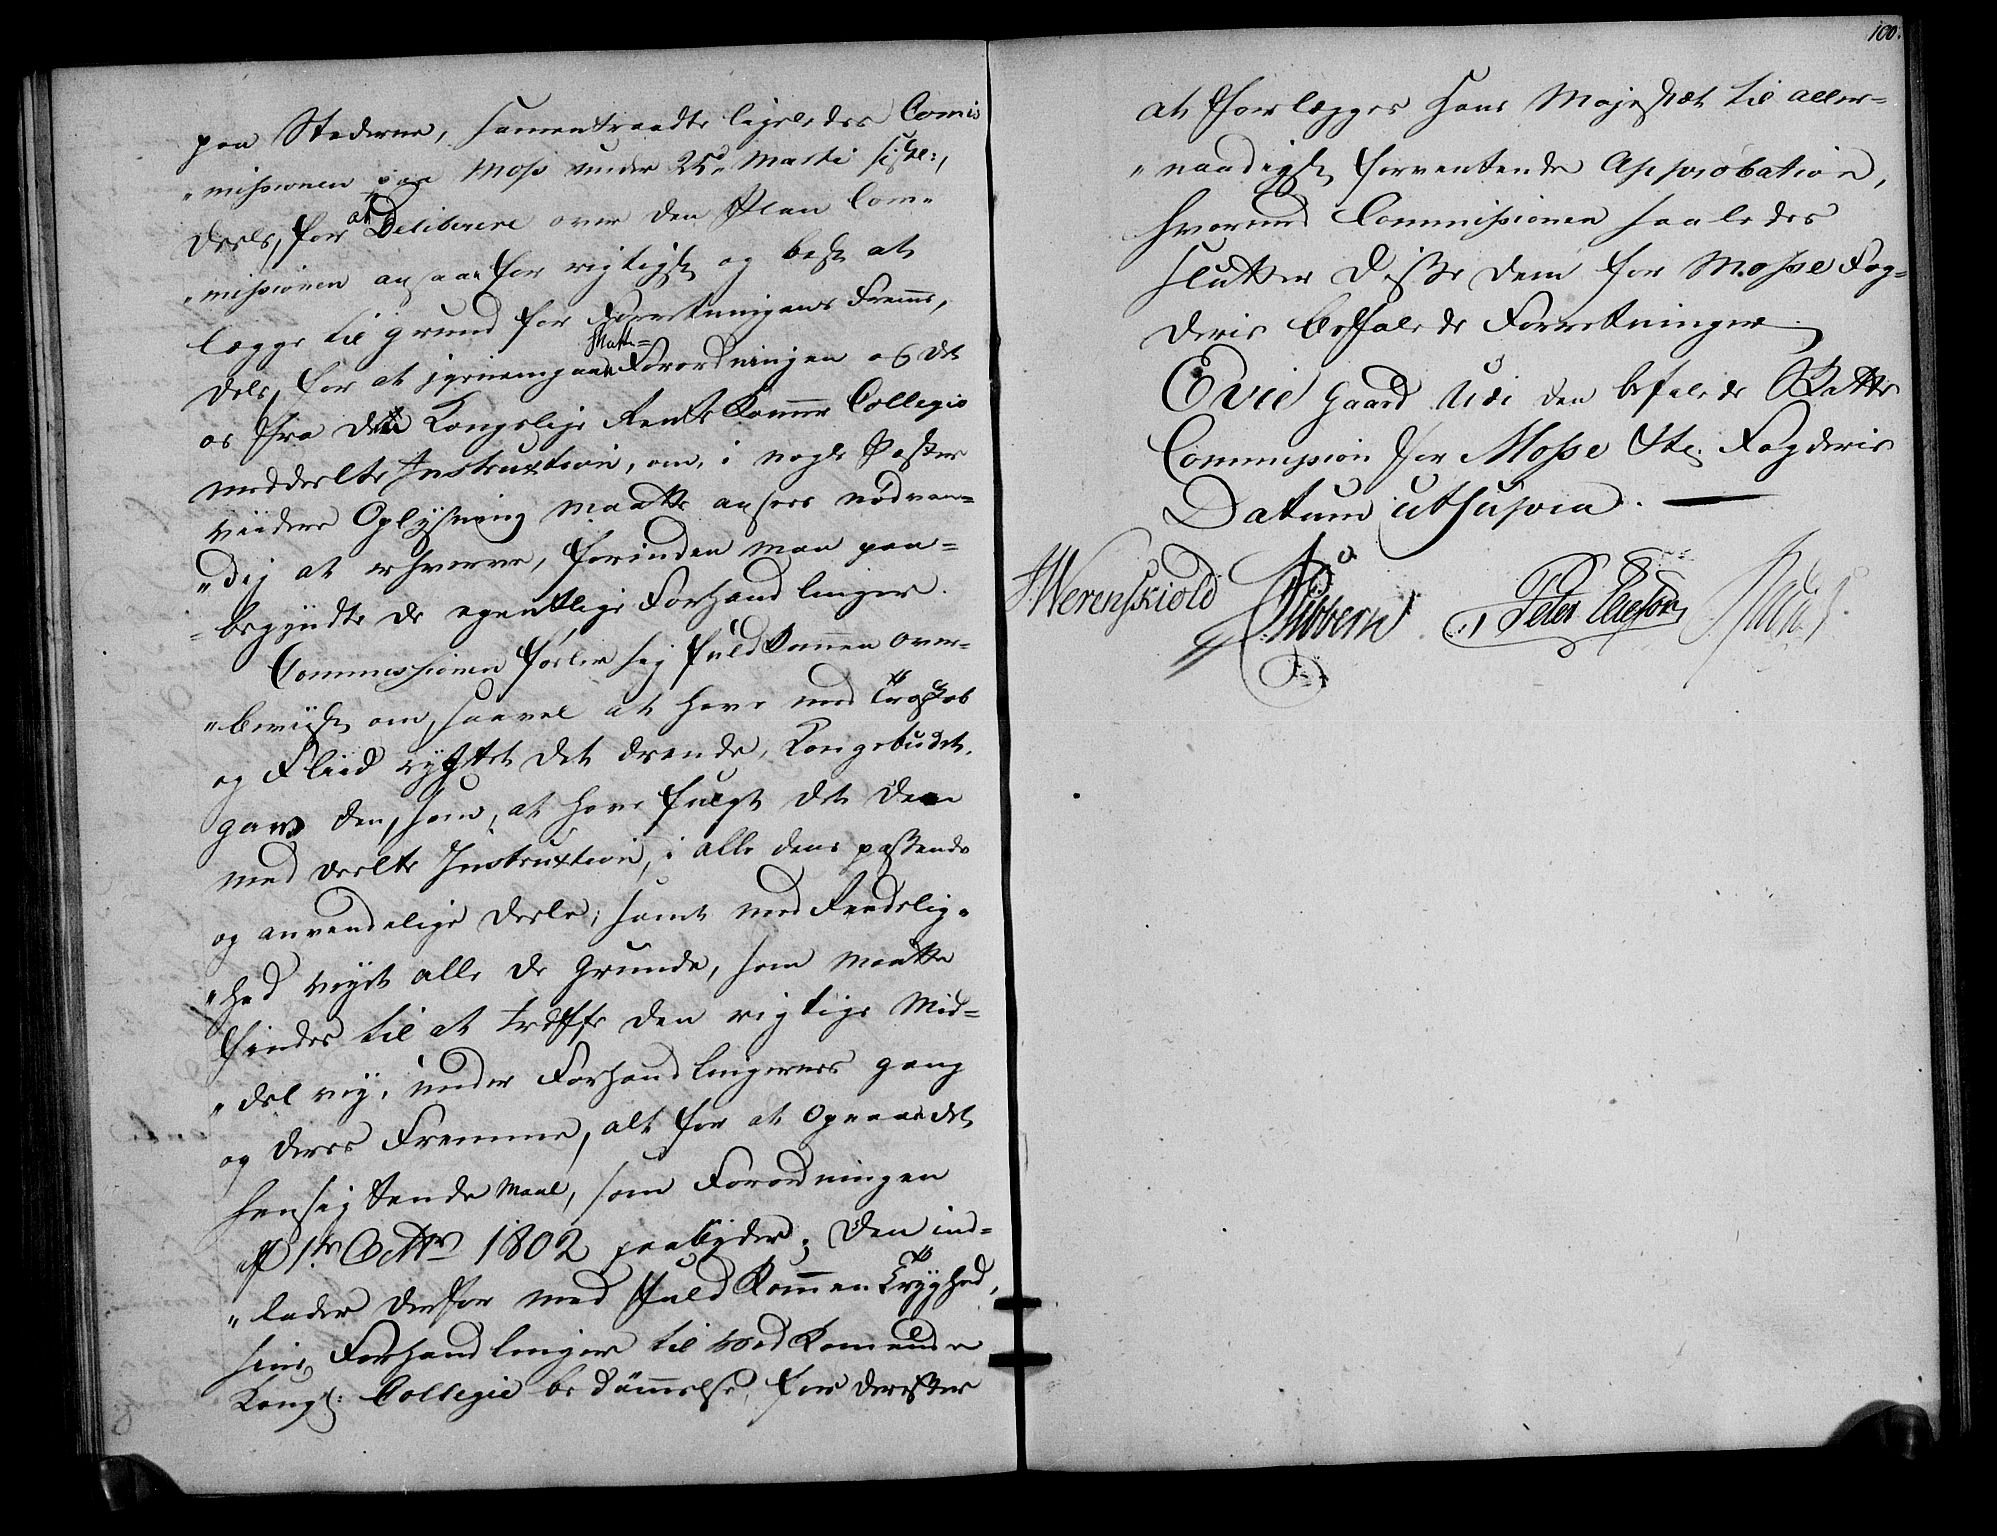 paa Stederne, samentraadte ligeledes Comis
"missionen paa Moss under 25de Martii sistl:,
deels, for at Deliberere over den Plan Com"
"missionen ansaae for rigtigst og best at
lægge til grund for Forretningens Fremme,
dels, for at igiennemgaae Matr= Forordningen og det
os fra det Kongelige Rente Kammer Collegio
meddeelte Instruxtion, om, i nogle Poster
viidere Oplysning maatte ansees nødvæn=
"dig at erhverve, forinden man paa=
=begyndte de egentlige Forhandlinger.
Commissionen føler sig fuldkommen over=
"beviist om, saavel at have med Troskab
og Fliid rygtet det Ærende, Kongebudet,
gav den, som, at have fulgt det den
med deelte Instruxtion, i alle dens passende
og anvendelige deele; samt med Reedelig"
"hed veyet alle de Grunde, som maatte
findes til at træffe den rigtige Mid=
"del vey, under Forhandlingernes gang
og deres Fremme, alt for at Opnaae det
hensigtende Maal, som Forordningen
af 1te Octbr 1802 paabyder; Den ind=
"lader derfor med fuldkommen Tryghed,
sine Forhandlinger til vedkommende
Kongl: Collegie bedømmelse, for derefter
100.
at forlægges Hans Majestæt til aller=
"naadigst forventende Approbation,
hvormed Commissionen saaledes
slutter disse dem for Mosse Fog=
deris befalede Forretninger.
Evie gaard udi den befalede Matr
Commission for Mosse Etc. Fogderie
Datum ut supra. —
Werenskiold Sibbern Peter Elieson